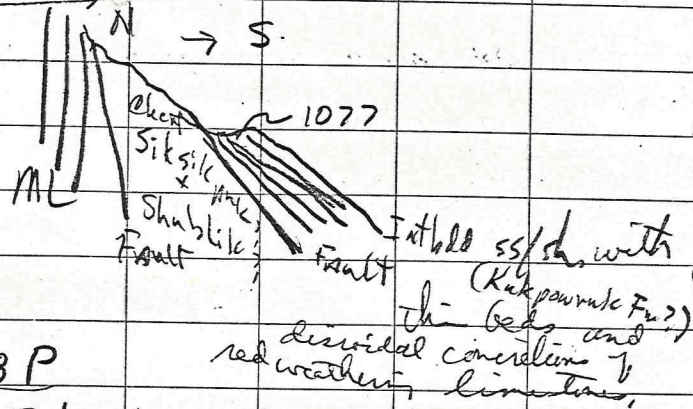 N → S
1077
chert
Sik Sik
ML
Shublik
Fault
Fault
Intbdd ss/sh with
(Kukpowruk Fm?)
thin beds and
discoidal concretions of
red weathering limestones,
3 P